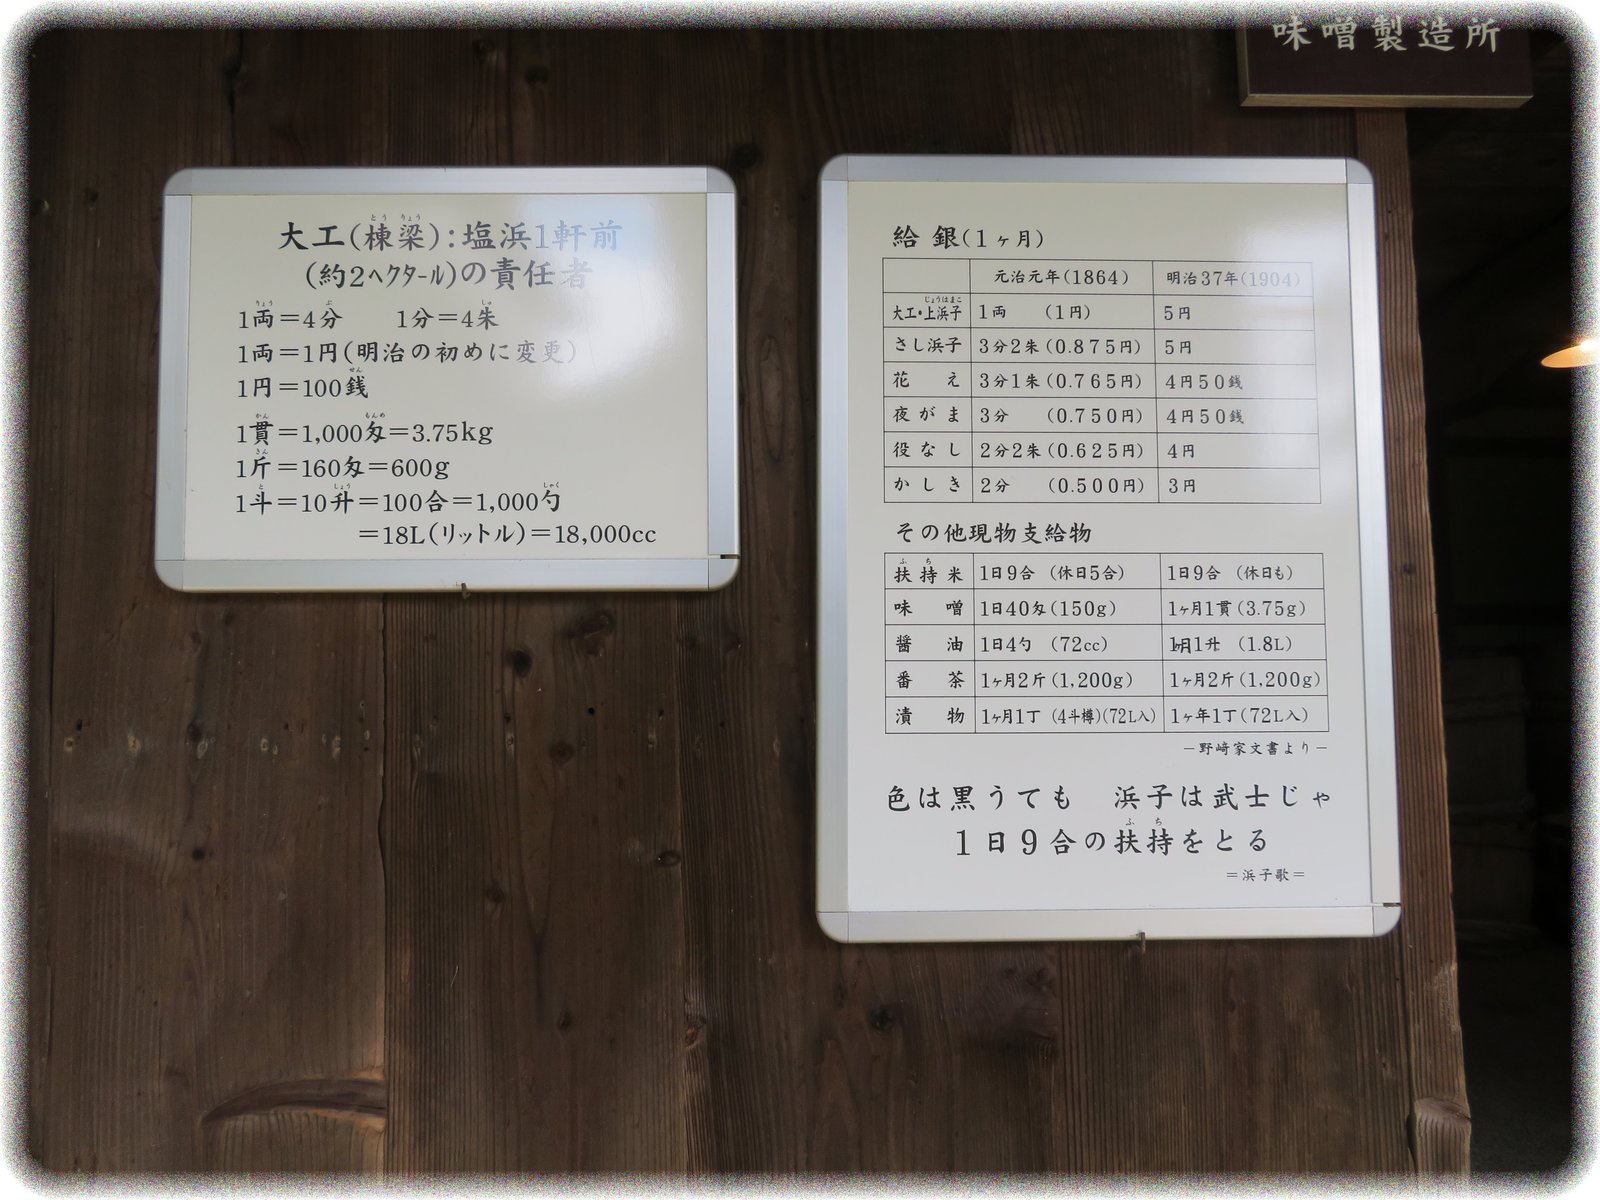 味噌製造所
大工(棟梁):塩浜1軒前
とう りょう
(約2ヘクタール)の責任者
りょう ぶ しゅ
1両=4分 1分=4朱
1両=1円(明治の初めに変更)
せん
1円=100銭
かん もんめ
1貫=1,000匁=3.75kg
きん
1斤=160匁=600g
と しょう しゃく
1斗=10升=100合=1,000勺
=18L(リットル)=18,000cc
給銀(1ヶ月)
元治元年(1864) 明治37年(1904)
じょうはまこ
大工・上浜子 1両 (1円) 5円
さし浜子 3分2朱(0.875円) 5円
花え 3分1朱(0.765円) 4円50銭
夜がま 3分 (0.750円) 4円50銭
役なし 2分2朱(0.625円) 4円
かしき 2分 (0.500円) 3円
その他現物支給物
ふち
扶持米 1日9合 (休日5合) 1日9合 (休日も)
味噌 1日40匁(150g) 1ヶ月1貫(3.75g)
醤油 1日4勺 (72cc) 1ヶ月1升 (1.8L)
番茶 1ヶ月2斤(1,200g) 1ヶ月2斤(1,200g)
漬物 1ヶ月1丁 (4斗樽)(72L入) 1ヶ年1丁(72L入)
-野﨑家文書より-
色は黒うても 浜子は武士じゃ
ふち
1日9合の扶持をとる
=浜子歌=